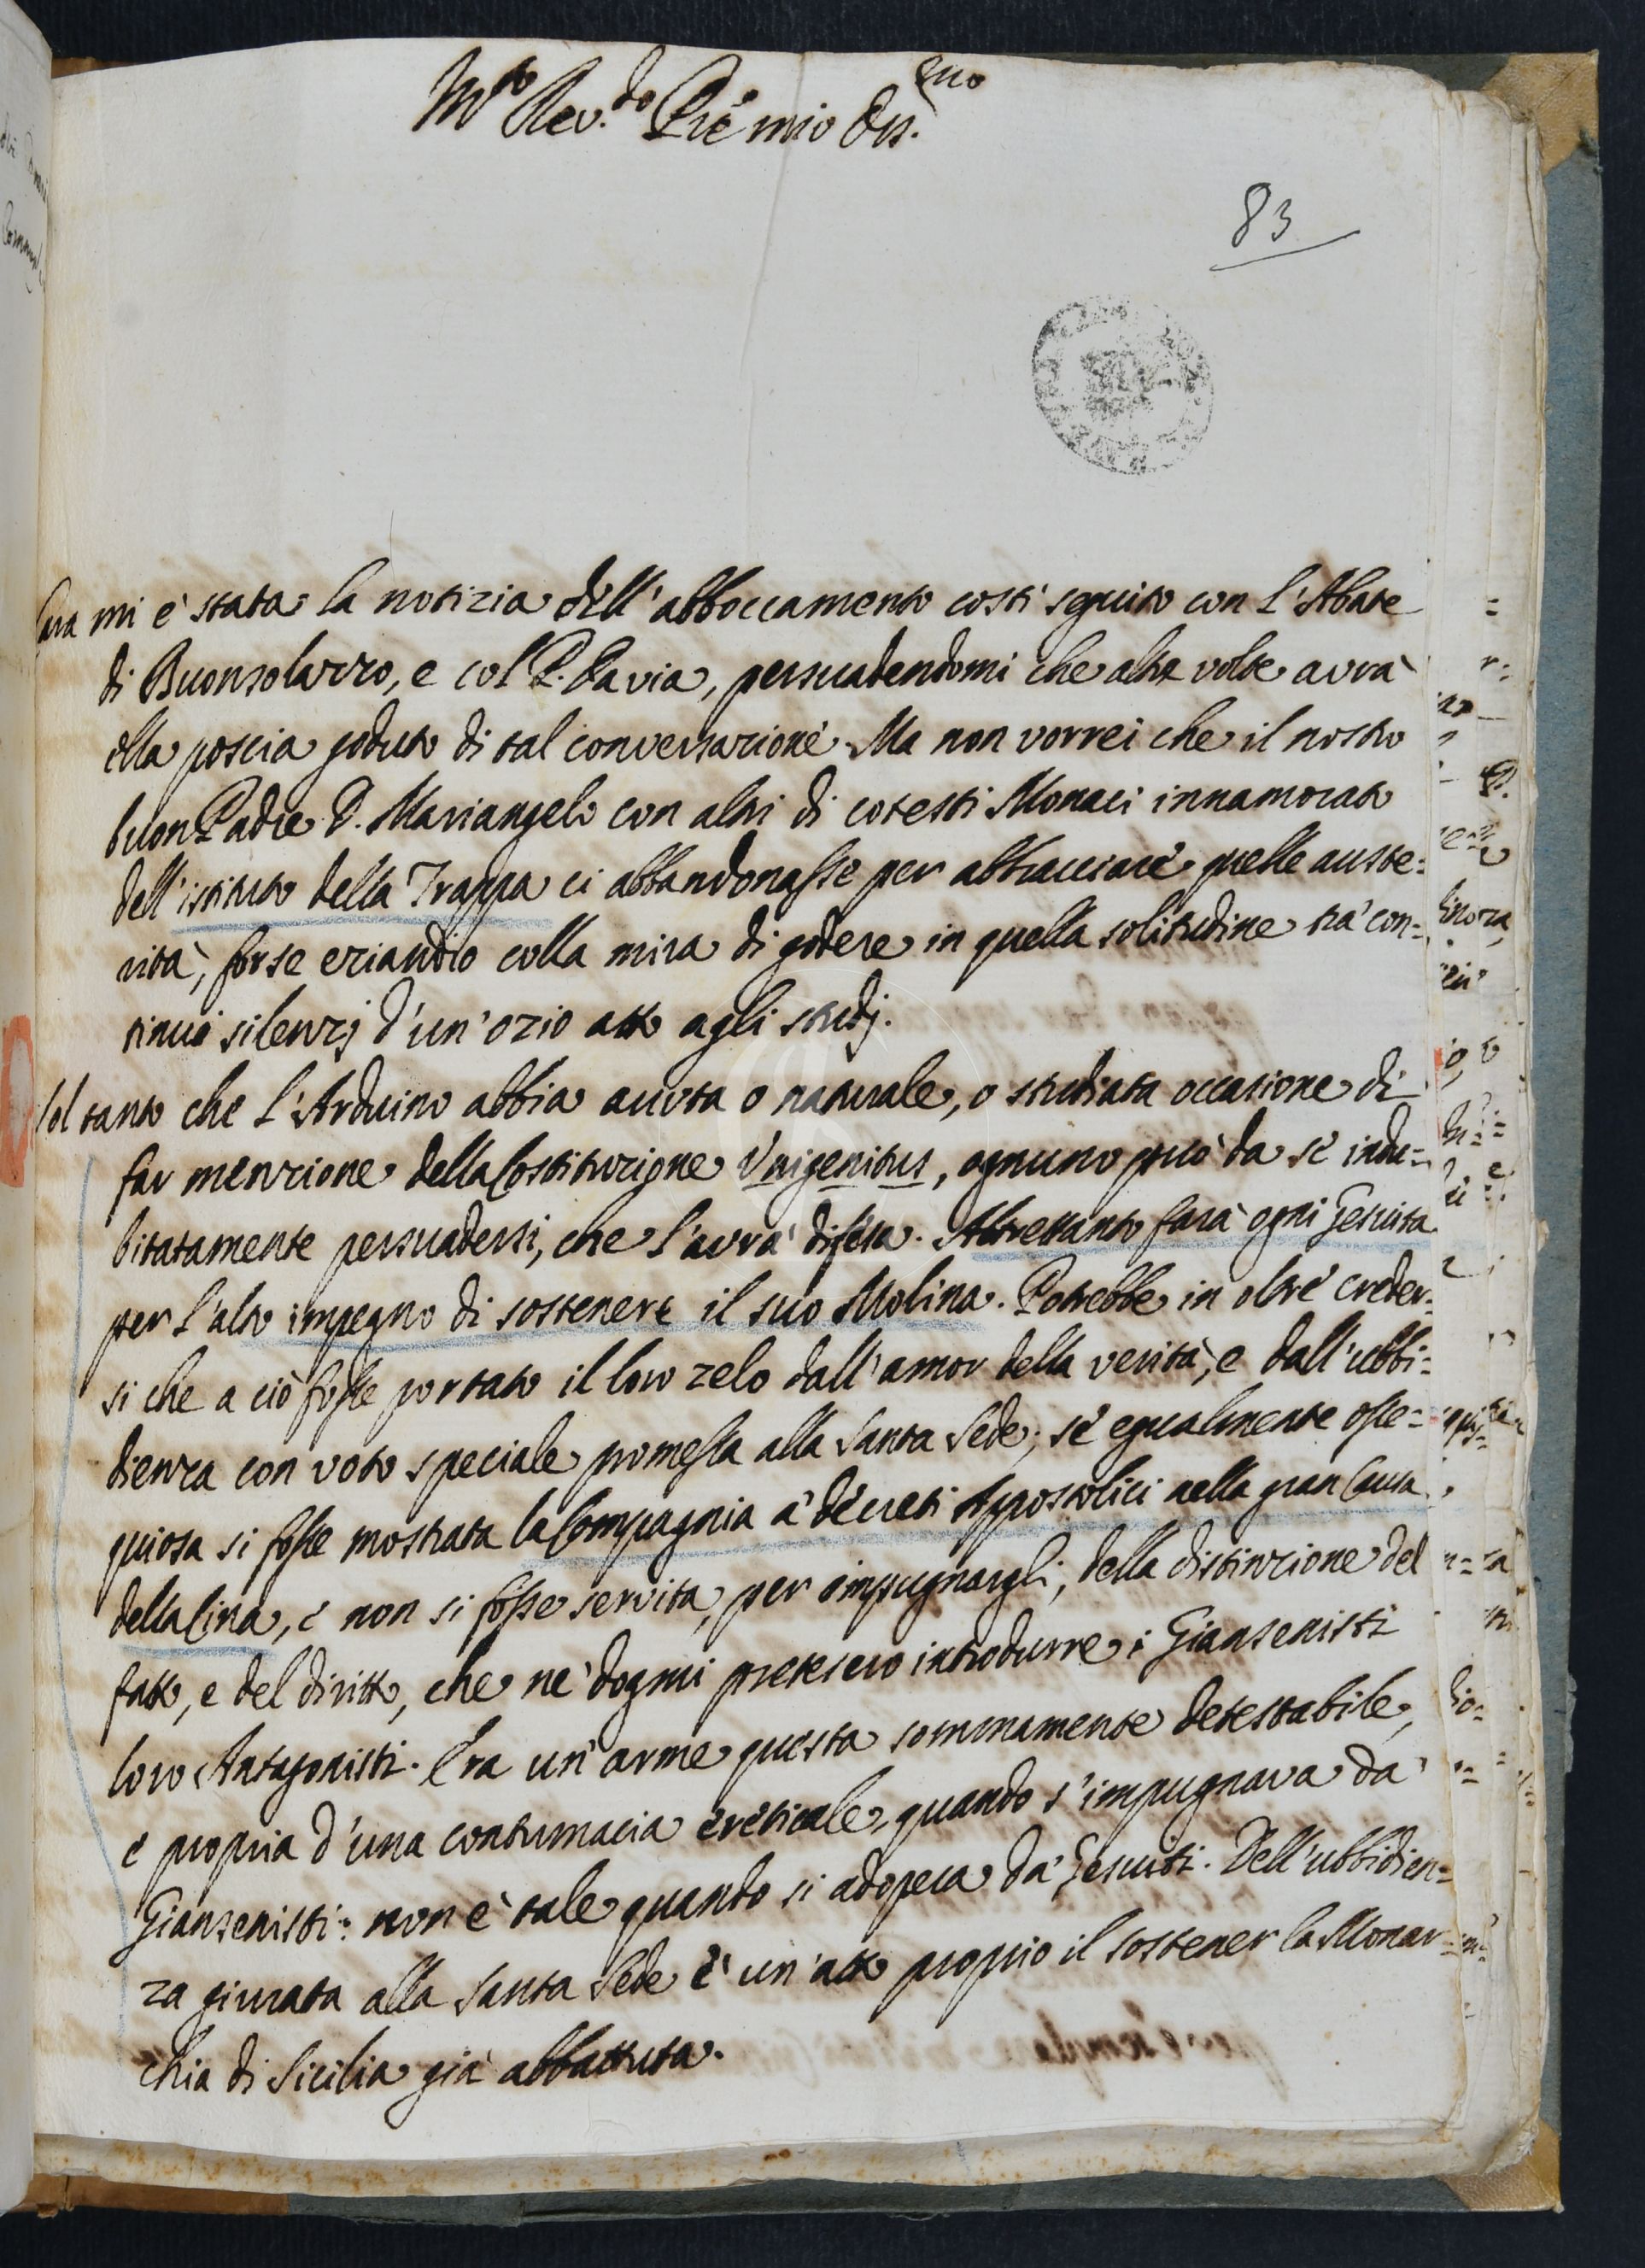 M.to Rev.do P.re mio Oss.mo
83
Cara mi è stata la notizia dell'abboccamento costi seguito con l'Abate
di Buonsolazzo, e col P. Davia, persuadendomi che altre volte avrà
ella poscia goduto di tal conversazione. Ma non vorrei che il nostro
buon Padre D. Mariangelo con altri di cotesti Monaci innamorato
dell'istituto della Trappa ci abbandonasse per abbracciare quelle auste=
rità, forse eziandio colla mira di godere in quella solitudine trà con=
tinui silenzj d'un'ozio atto agli studj.
Sol tanto che l'Arduino abbia avuta o naturale, o studiata occasione di
far menzione della Costituzione Unigenitus, ognuno può da sè indu=
bitatamente persuadersi, che l'avrà difesa. Altrettanto farà ogni Gesuita
per l'alto impegno di sostenere il suo Molina. Potrebbe in oltre creder=
si che a ciò fosse portato il loro zelo dall'amor della verità, e dall'ubbi=
dienza con voto speciale promessa alla Santa Sede, se egualmente osse=
quiosa si fosse mostrata la Compagnia a' decreti Appostolici nella gran Causa
della Cina, e non si fosse servita, per impugnargli, della distinzione del
fatto, e del diritto, che ne' dogmi pretesero introdurre i Giansenisti
loro Antagonisti. Era un'arme questa sommamente detestabile,
e propria d'una contumacia ereticale, quando s'impugnava da'
Giansenisti: non è tale quando si adopera da' Gesuiti. Dell'ubbidien=
za giurata alla Santa Sede è un'atto proprio il sostener la Monar=
chia di Sicilia già abbattuta.